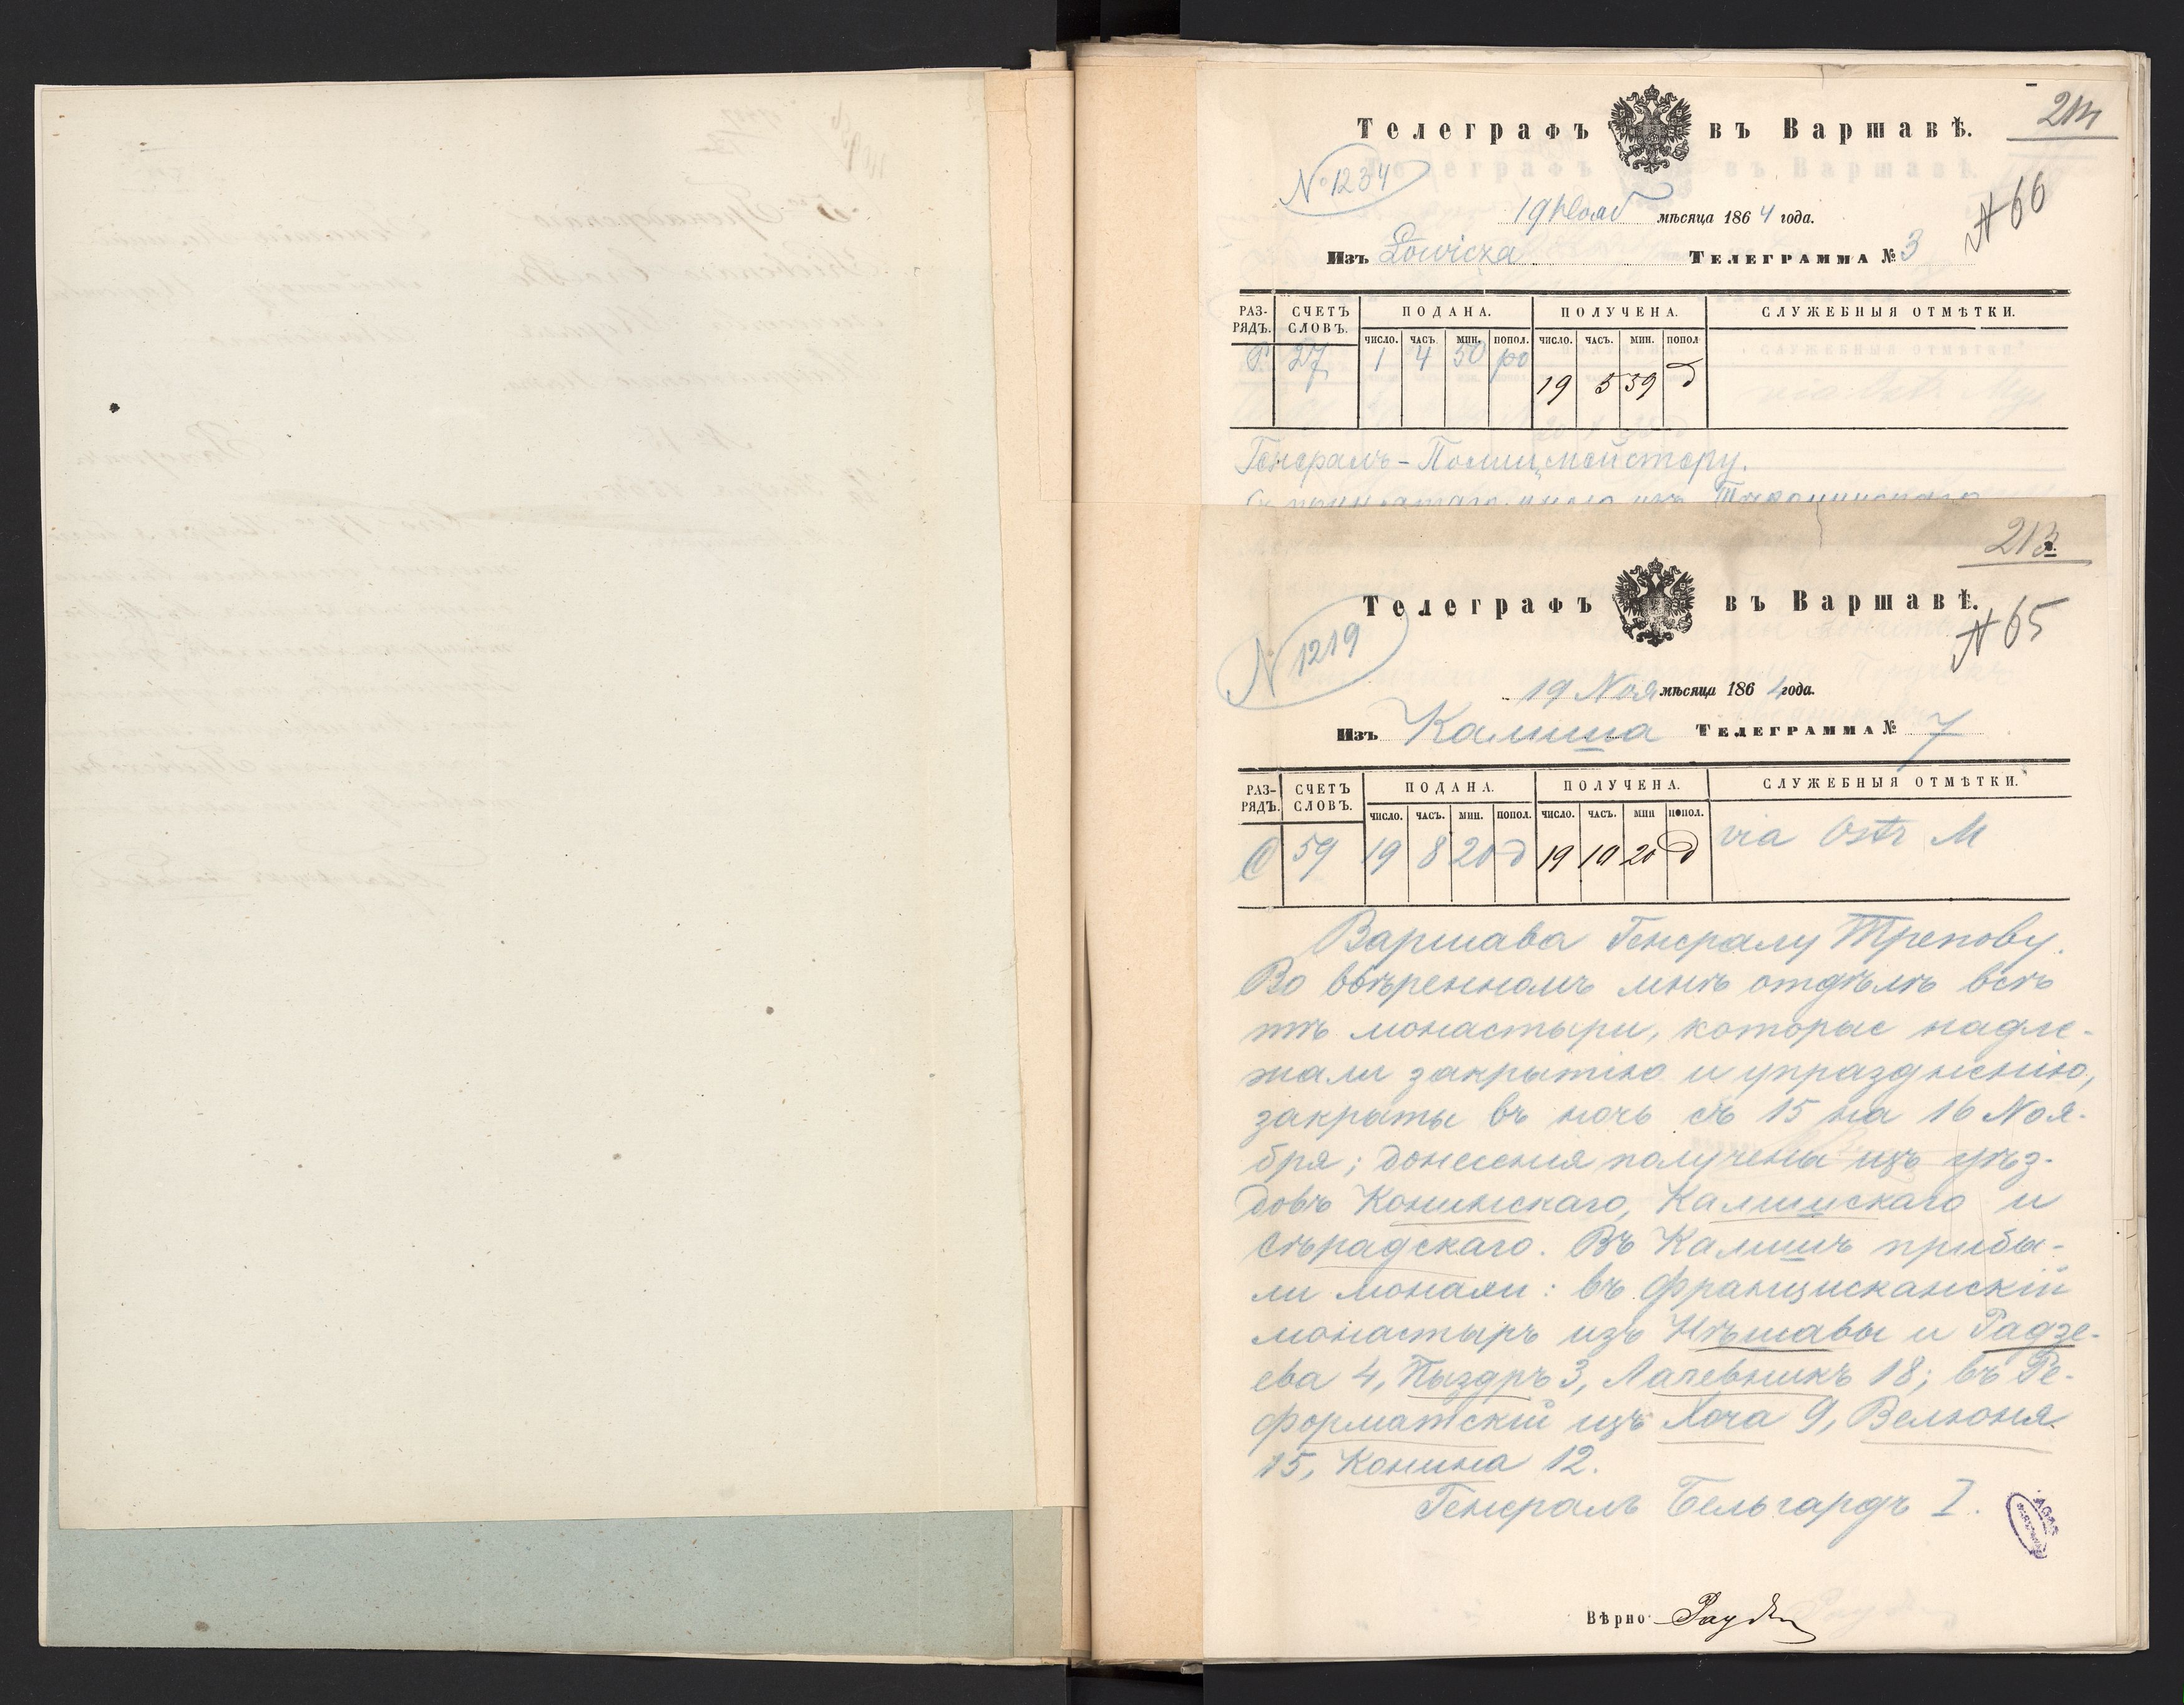 214
Телеграфъ въ Варшавѣ.
№ 1234
№ 66
19 Нояб мѣсяца 1864 года.
Изъ Łowicza ТЕЛЕГРАММА № 3
РАЗ-РЯДЪ. СЧЕТЪ СЛОВЪ. ПОДАНА. ПОЛУЧЕНА. СЛУЖЕБНЫЯ ОТМѢТКИ.
ЧИСЛО. ЧАСЪ. МИН. ПОПОЛ. ЧИСЛО. ЧАСЪ. МИН. ПОПОЛ
27 1 4 50 po
19 5 39 д
Генералъ-Полицмейстеру.
213
Телеграфъ въ Варшавѣ.
N 1219
№ 65
19 Ноя мѣсяца 1864 года.
Изъ Калиша ТЕЛЕГРАММА № 7
РАЗ-РЯДЪ. СЧЕТЪ СЛОВЪ. ПОДАНА. ПОЛУЧЕНА. СЛУЖЕБНЫЯ ОТМѢТКИ.
ЧИСЛО. ЧАСЪ. МИН. ПОПОЛ. ЧИСЛО. ЧАСЪ. МИН ПОПОЛ.
С 59 19 8 20 д 19 10 20 д via Ostr M
Варшава Генералу Трепову.
Во ввѣренномъ мнѣ отдѣлѣ всѣ
тѣ монастыри, которые надле-
жали закрытію и упраздненію,
закрыты въ ночь съ 15 на 16 Ноя-
бря; донесенія получены изъ уѣз-
довъ Конинскаго, Калишскаго и
Сѣрадскаго. Въ Калишъ прибы-
ли монахи: въ Францисканскій
монастырь изъ Нѣшавы и Радзе-
ева 4, Пыздръ 3, Лагевникъ 18; въ Ре-
форматскій изъ Хоча 9, Велюня
15, Конина 12.
Генералъ Бельгардъ I.
Вѣрно